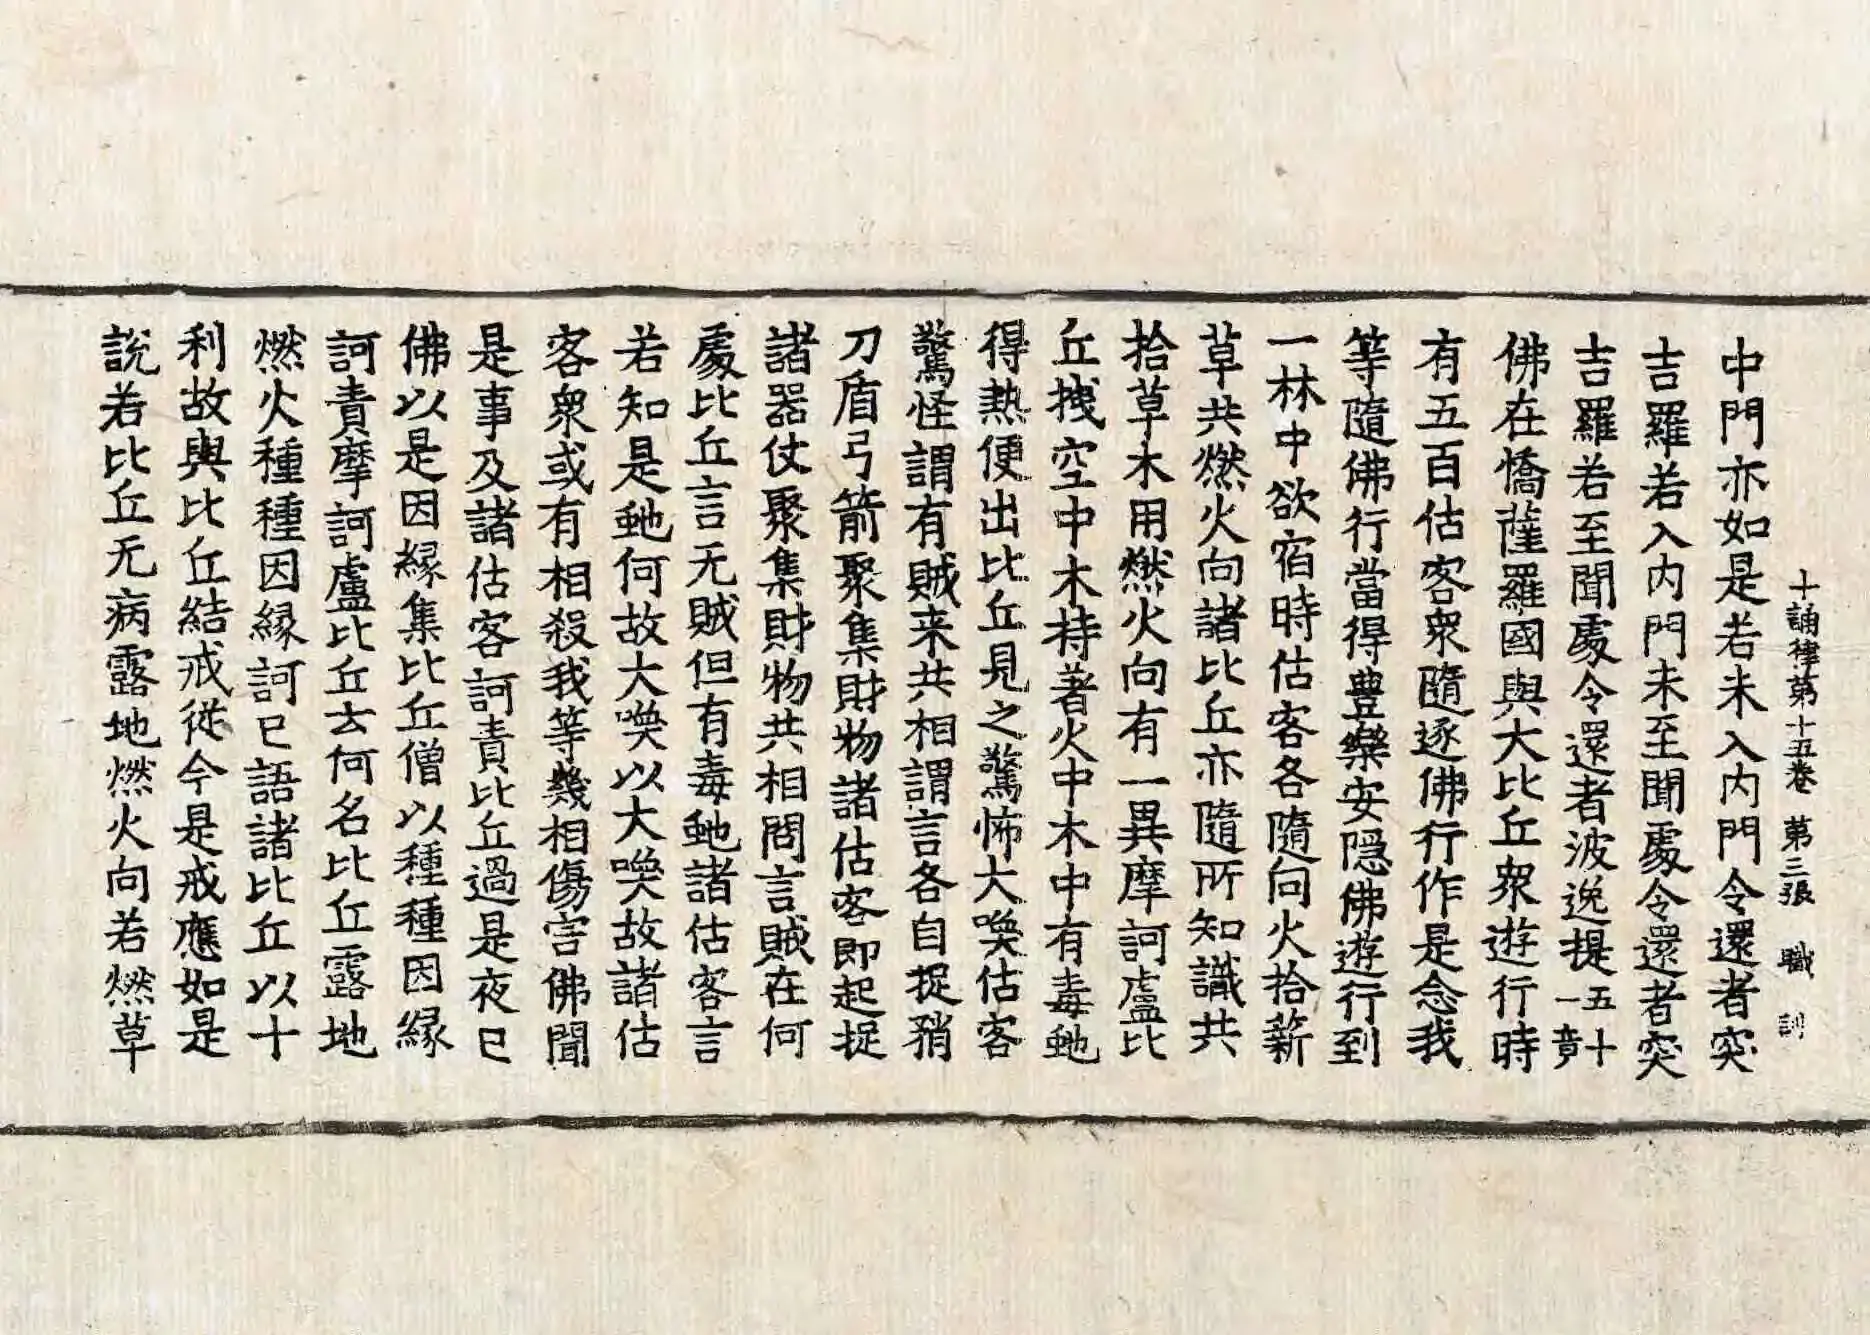 十誦律第十五卷 第三張 職
中門亦如是若未入內門令還者突
吉羅若入內門未至聞處令還者突
吉羅若至聞處令還者波逸提五十一章
佛在憍薩羅國與大比丘眾遊行時
有五百估客眾隨逐佛行作是念我
等隨佛行當得豊樂安隠佛遊行到
一林中欲宿時估客各隨向火拾薪
草共燃火向諸比丘亦隨所知識共
拾草木用燃火向有一異摩訶盧比
丘拽空中木持著火中木中有毒虵
得熱便出比丘見之驚怖大喚估客
驚怪謂有賊来共相謂言各自捉矟
刀盾弓箭聚集財物諸估客即起捉
諸器仗聚集財物共相問言賊在何
處比丘言无賊但有毒虵諸估客言
若知是虵何故大喚以大喚故諸估
客眾或有相殺我等幾相傷害佛聞
是事及諸估客訶責比丘過是夜已
佛以是因縁集比丘僧以種種因縁
訶責摩訶盧比丘云何名比丘露地
燃火種種因縁訶已語諸比丘以十
利故與比丘結戒從今是戒應如是
說若比丘无病露地燃火向若燃草